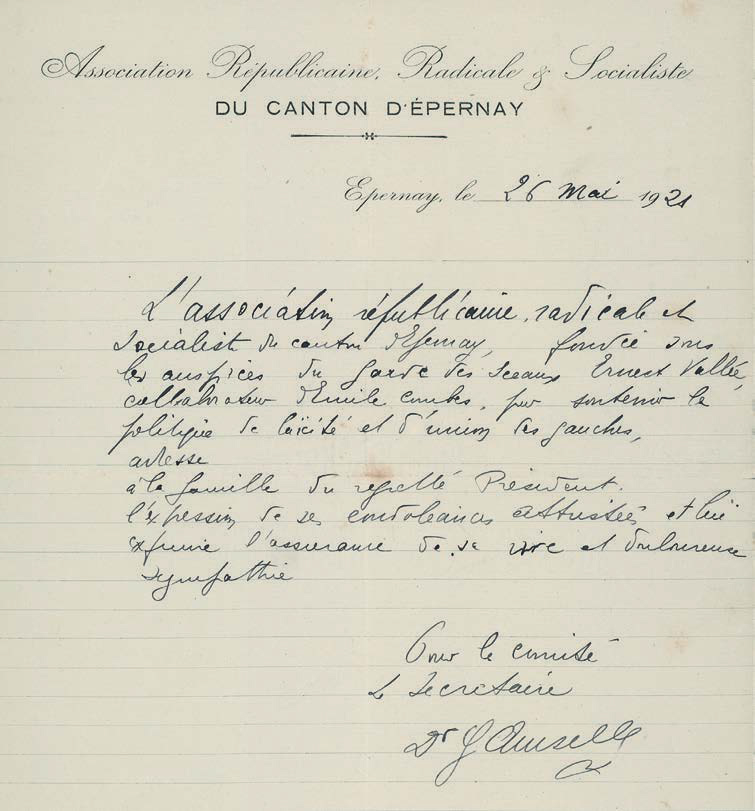 Association Républicaine, Radicale & Socialiste
DU CANTON D'ÉPERNAY
Epernay, le 26 Mai 1921
L'association républicaine, radicale et
socialiste du canton d'Epernay, fondée sous
les auspices du garde des sceaux Ernest Vallé,
collaborateur d'Emile Combes, pour soutenir la
politique de laïcité et d'union des gauches,
adresse
à la famille du regretté Président.
l'expression de ses condoléances attristées et lui
exprime l'assurance de sa vive et douloureuse
sympathie
Pour le comité
Le Secrétaire
Dr G